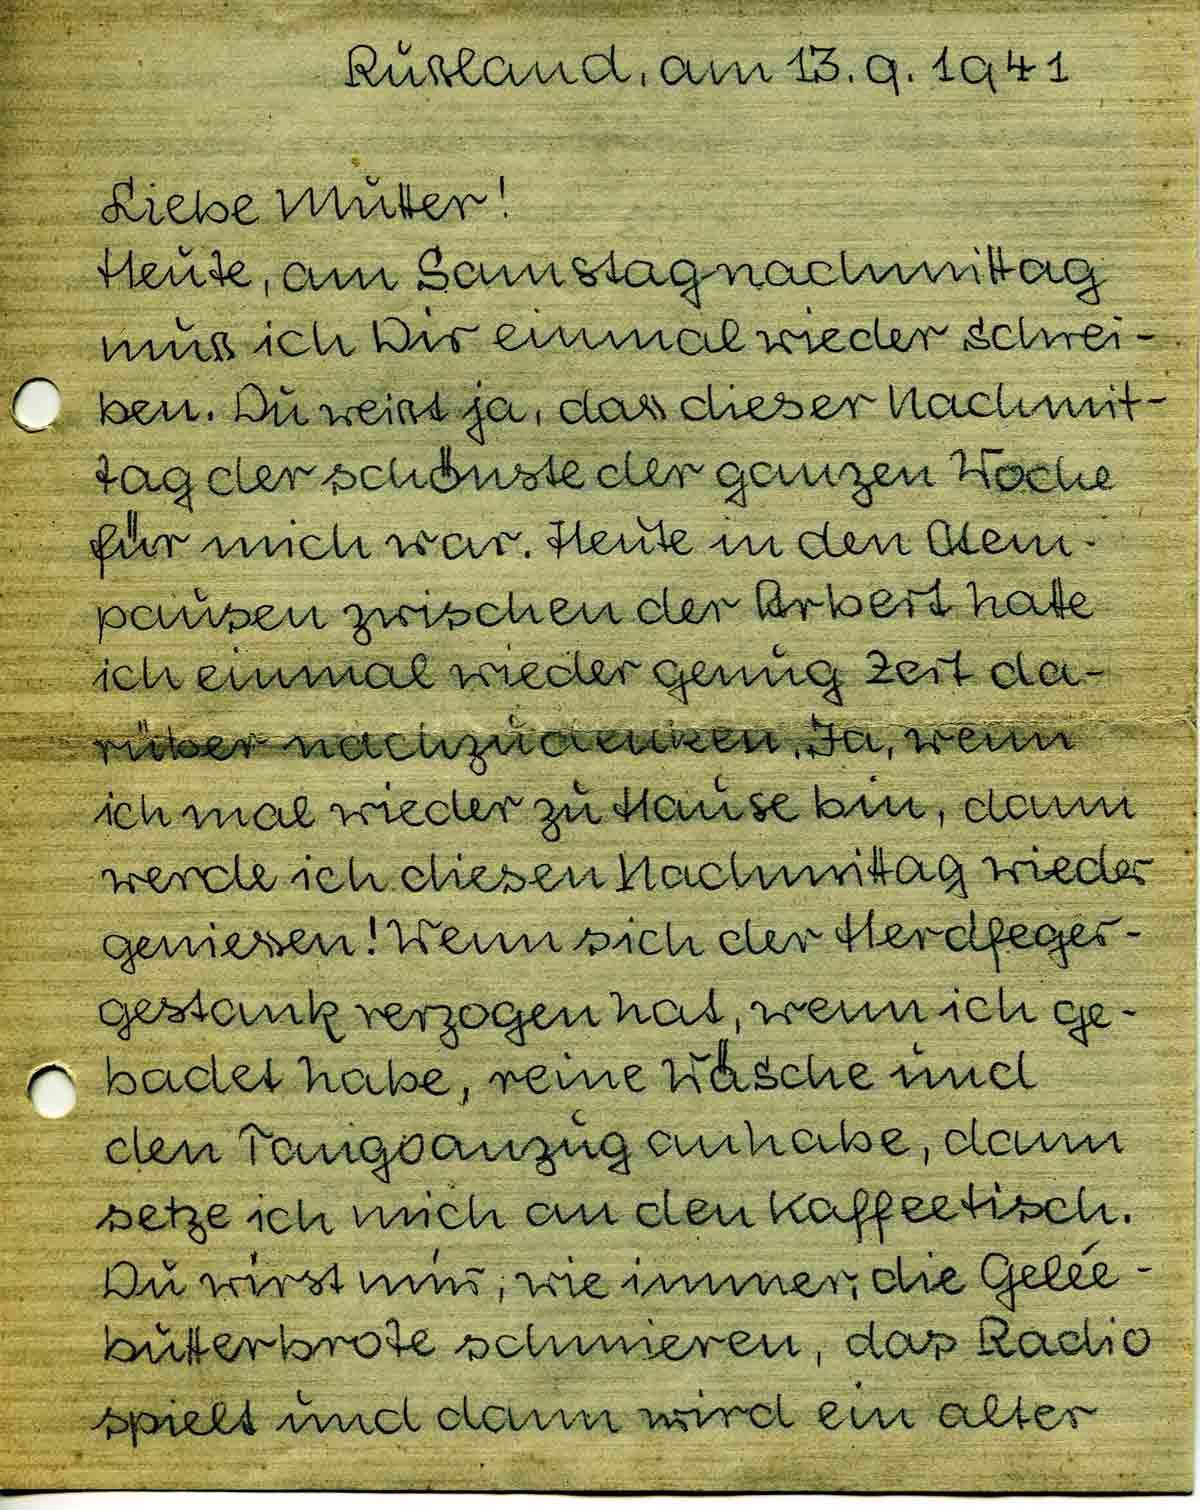 Rußland, am 13.9.1941
Liebe Mutter!
Heute, am Samstagnachmittag
muß ich Dir einmal wieder schrei-
ben. Du weißt ja, dass dieser Nachmit-
tag der schönste der ganzen Woche
für mich war. Heute in den Atem-
pausen zwischen der Arbeit hatte
ich einmal wieder genug Zeit da-
rüber nachzudenken. Ja, wenn
ich mal wieder zu Hause bin, dann
werde ich diesen Nachmittag wieder
geniessen! Wenn sich der Herdfeger-
gestank verzogen hat, wenn ich ge-
badet habe, reine Wäsche und
den Tangoanzug anhabe, dann
setze ich mich an den Kaffeetisch.
Du wirst mir, wie immer, die Gelée-
butterbrote schmieren, das Radio
spielt und dann wird ein alter